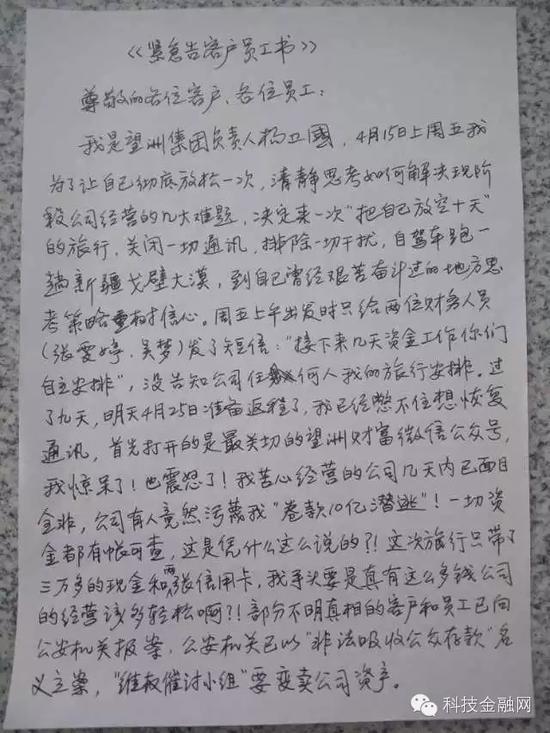 《紧急告客户员工书》
尊敬的各位客户、各位员工：
我是望洲集团负责人杨卫国，4月15日上周五我
为了让自己彻底放松一次，清静思考如何解决现阶
段公司经营的几大难题，决定来一次“把自己放空十天”
的旅行，关闭一切通讯，排除一切干扰，自驾车跑一
趟新疆戈壁大漠，到自己曾经艰苦奋斗过的地方思
考策略重树信心。周五上午出发时只给两位财务人员
（张雯婷、吴梦）发了短信：“接下来几天资金工作你们
自主安排”，没告知公司任何人我的旅行安排。过
了九天，明天4月25日准备返程了，我已经憋不住想恢复
通讯，首先打开的是最关切的望洲财富微信公众号，
我惊呆了！也震怒了！我苦心经营的公司几天内已面目
全非，公司有人竟然污蔑我“卷款10亿潜逃”！一切资
金都有帐可查，这是凭什么这么说的？！这次旅行只带了
三万多的现金和两张信用卡，我手头要是真有这么多钱公司
的经营该多轻松啊？！部分不明真相的客户和员工已向
公安机关报案，公安机关已以“非法吸收公众存款”名
义立案，“维权催讨小组”要变卖公司资产。
科技金融网